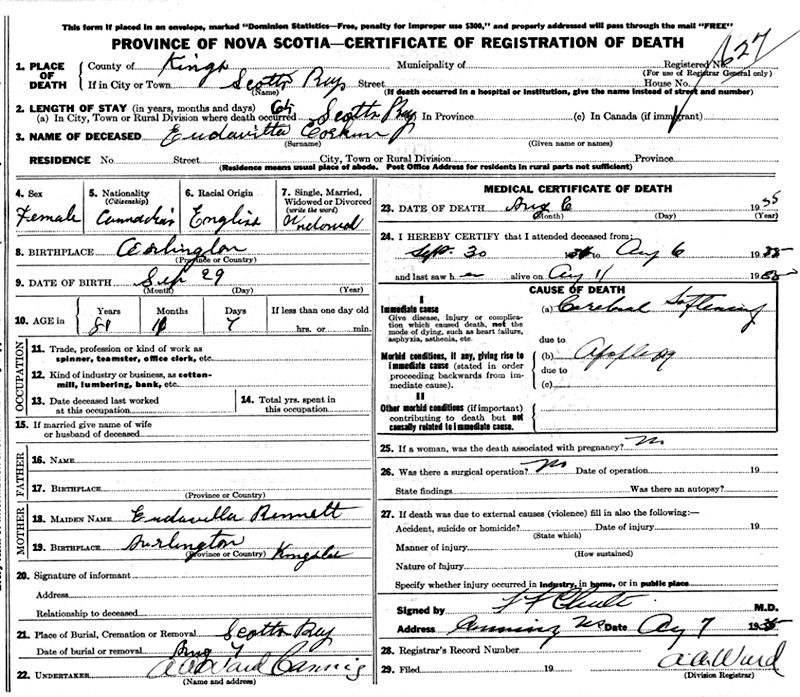 This form if placed in an envelope, marked "Dominion Statistics—Free, penalty for improper use $300," and properly addressed will pass through the mail "FREE"
PROVINCE OF NOVA SCOTIA—CERTIFICATE OF REGISTRATION OF DEATH
627
1. PLACE OF DEATH County of Kings Municipality of Registered No.
(For use of Registrar General only)
If in City or Town Scotts Bay Street House No.
(Name) (If death occurred in a hospital or institution, give the name instead of street and number)
2. LENGTH OF STAY (in years, months and days)
(a) In City, Town or Rural Division where death occurred Scotts Bay In Province (c) In Canada (if immigrant)
3. NAME OF DECEASED Eudavilla
(Surname) (Given name or names)
RESIDENCE No. Street City, Town or Rural Division Province
(Residence means usual place of abode. Post Office Address for residents in rural parts not sufficient)
4. Sex 5. Nationality (Citizenship) 6. Racial Origin 7. Single, Married, Widowed or Divorced (write the word)
Female Canadian English Widowed
8. BIRTHPLACE Arlington
(Province or Country)
9. DATE OF BIRTH Sep 29
(Month) (Day) (Year)
10. AGE in Years Months Days If less than one day old
81 7 hrs. or min.
OCCUPATION
11. Trade, profession or kind of work as spinner, teamster, office clerk, etc.
12. Kind of industry or business, as cotton-mill, lumbering, bank, etc.
13. Date deceased last worked at this occupation 14. Total yrs. spent in this occupation
15. If married give name of wife or husband of deceased
FATHER
16. NAME
17. BIRTHPLACE
(Province or Country)
MOTHER
18. MAIDEN NAME Eudavilla Bennett
19. BIRTHPLACE Burlington Kings
(Province or Country)
20. Signature of informant
Address
Relationship to deceased
21. Place of Burial, Cremation or Removal Scotts Bay
Date of burial or removal Aug 7
22. UNDERTAKER A A Ward Canning
(Name and address)
MEDICAL CERTIFICATE OF DEATH
23. DATE OF DEATH Aug 6 1935
(Month) (Day) (Year)
24. I HEREBY CERTIFY that I attended deceased from:
Sept. 30 to Aug 6 1935
and last saw her alive on Aug 1935
CAUSE OF DEATH
I
Immediate cause (a) Cerebral Softening
Give disease, injury or complication which caused death, not the mode of dying, such as heart failure, asphyxia, asthenia, etc.
due to
Morbid conditions, if any, giving rise to immediate cause (stated in order proceeding backwards from immediate cause).
(b) Apoplexy
due to
(c)
II
Other morbid conditions (if important) contributing to death but not causally related to immediate cause.
25. If a woman, was the death associated with pregnancy? No
26. Was there a surgical operation? No Date of operation 19
State findings Was there an autopsy?
27. If death was due to external causes (violence) fill in also the following:—
Accident, suicide or homicide? Date of injury 19
(State which)
Manner of injury
(How sustained)
Nature of Injury
Specify whether injury occurred in industry, in home, or in public place
Signed by M.D.
Address Canning NS Date Aug 7 1935
28. Registrar's Record Number
29. Filed 19 A. A. Ward
(Division Registrar)